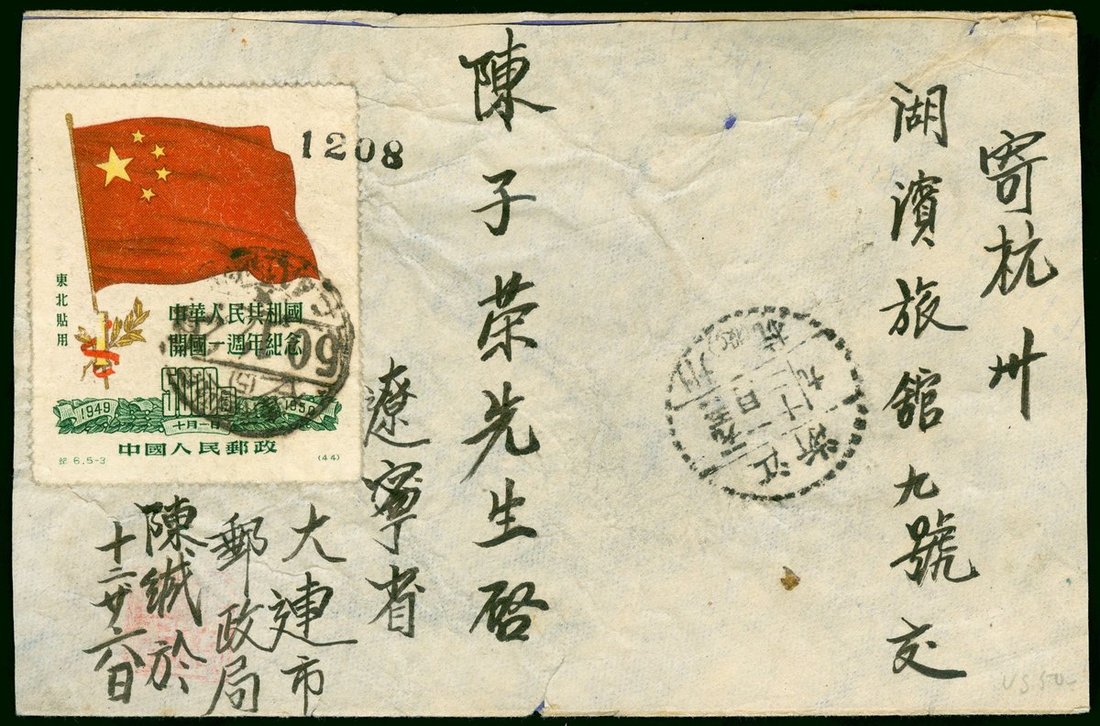 寄杭州
湖濱旅館九號交
陳子荣先生啓
遼寧省
大連市
郵政局
陳緘於
十二廿六日
1208
東北貼用
中華人民共和國
開國一週年紀念
5000圓
1949
1950
十月一日
中國人民郵政
紀6.5-3
(44)
浙江
杭州